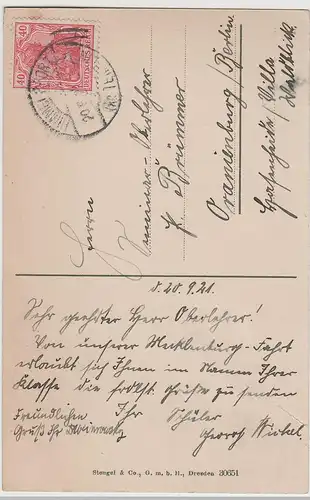 40 40
DEUTSCHES REICH
Herrn
Seminar-Oberlehrer
Brümmer
Oranienburg/Berlin
Hasenheide/Villa
Waldblick.
d. 20.9.21.
Sehr geehrter Herr Oberlehrer!
Von unserer Mecklenburg-Fahrt
erlaubt sich Ihnen im Namen Ihrer
Klasse die Grüße zu senden
Ihr Schüler
Freundlichen
Gruß Ihr
Stengel & Co., G. m. b. H., Dresden 30651